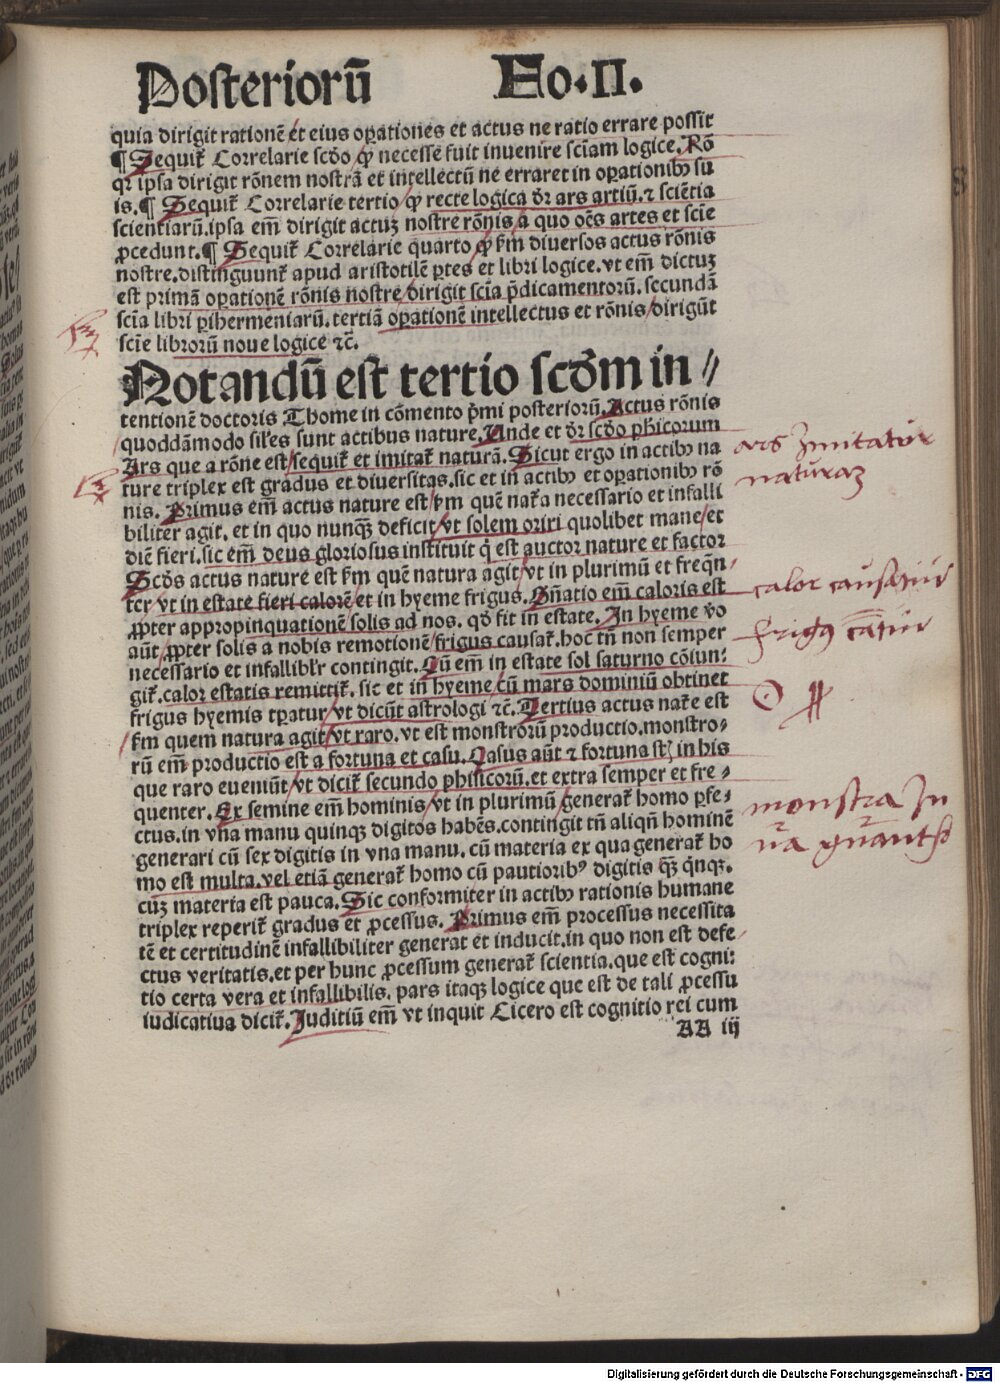 Posteriorū Fo.II.
quia dirigit rationē et eius oꝑationes et actus ne ratio errare possit
¶ Sequit᷑ Correlarie scd̄o ꝙ necesse fuit inuenire sciam logice. Rō
qꝛ ipsa dirigit rōnem nostrā et intellectū ne erraret in oꝑationibꝰ su
is. ¶ Sequit᷑ Correlarie tertio ꝙ recte logica dꝛ ars artiū. ⁊ sciētia
scientiarū. ipsa em̄ dirigit actuꝫ nostre rōnis a quo oēs artes et scie
ꝓcedunt. ¶ Sequit᷑ Correlarie quarto ꝙ fm diuersos actus rōnis
nostre. distinguunt᷑ apud aristotilē ꝑtes et libri logice. vt em̄ dictuꝫ
est primā oꝑationē rōnis nostre/dirigit scia p̄dicamentorū. secundā
scia libri ꝑihermeniarū. tertiā oꝑationē intellectus et rōnis/dirigūt
scie librorū noue logice ⁊c̄.
Notandū est tertio scd̄m in//
tentionē doctoris Thome in cōmento p̄mi posteriorū. Actus rōnis
quoddāmodo siles sunt actibus nature. Unde et dꝛ scd̄o phicorum
Ars que a rōne est/sequit᷑ et imitat᷑ naturā. Sicut ergo in actibꝰ na
ture triplex est gradus et diuersitas. sic et in actibꝰ et oꝑationibꝰ rō
nis. Primus em̄ actus nature est/fm quē nat᷑a necessario et infalli
biliter agit. et in quo nunqꝫ deficit/vt solem oriri quolibet mane/et
diē fieri. sic em̄ deus gloriosus instituit q̇ est auctor nature et factor
Scd̄s actus nature est fm quē natura agit/vt in plurimū et freqn̄
ter/vt in estate fieri calorē/et in hyeme frigus. Gn̄atio em̄ caloris est
ꝓpter appropinquationē solis ad nos. qd̄ fit in estate. In hyeme v̄o
aūt/ꝓpter solis a nobis remotionē/frigus causat᷑. hoc tn̄ non semper
necessario et infallibl'r contingit. Cū em̄ in estate sol saturno cōiun:
git᷑. calor estatis remittit᷑. sic et in hyeme/cū mars dominiū obtinet
frigus hyemis tꝑatur/vt dicūt astrologi ⁊c̄. Tertius actus nat᷑e est
/fm quem natura agit/vt raro. vt est monstrorū productio. monstro⸗
rū em̄ productio est a fortuna et casu. Casus aūt ⁊ fortuna st̄ in his
que raro eueniūt/vt dicit᷑ secundo phisicorū. et extra semper et fre⸗
quenter. Ex semine em̄ hominis/vt in plurimū/generat᷑ homo ꝑfe⸗
ctus. in vna manu quinqꝫ digitos habēs. contingit tn̄ aliqn̄ hominē
generari cū sex digitis in vna manu. cū materia ex qua generat᷑ ho
mo est multa. vel etiā generat᷑ homo cū pautioribꝰ digitis qꝫ qn̄qꝫ.
cūꝫ materia est pauca. Sic conformiter in actibꝰ rationis humane
triplex reperit᷑ gradus et ꝓcessus. Primus em̄ processus necessita
tē et certitudinē infallibiliter generat et inducit. in quo non est defe
ctus veritatis. et per hunc ꝓcessum generat᷑ scientia. que est cogni:
tio certa vera et infallibilis. pars itaqꝫ logice que est de tali ꝓcessu
iudicatiua dicit᷑. Juditiū em̄ vt inquit Cicero est cognitio rei cum
AA iij
ars Imitatur
naturaꝫ
calor causatur
frigꝰ cātur
monstra In